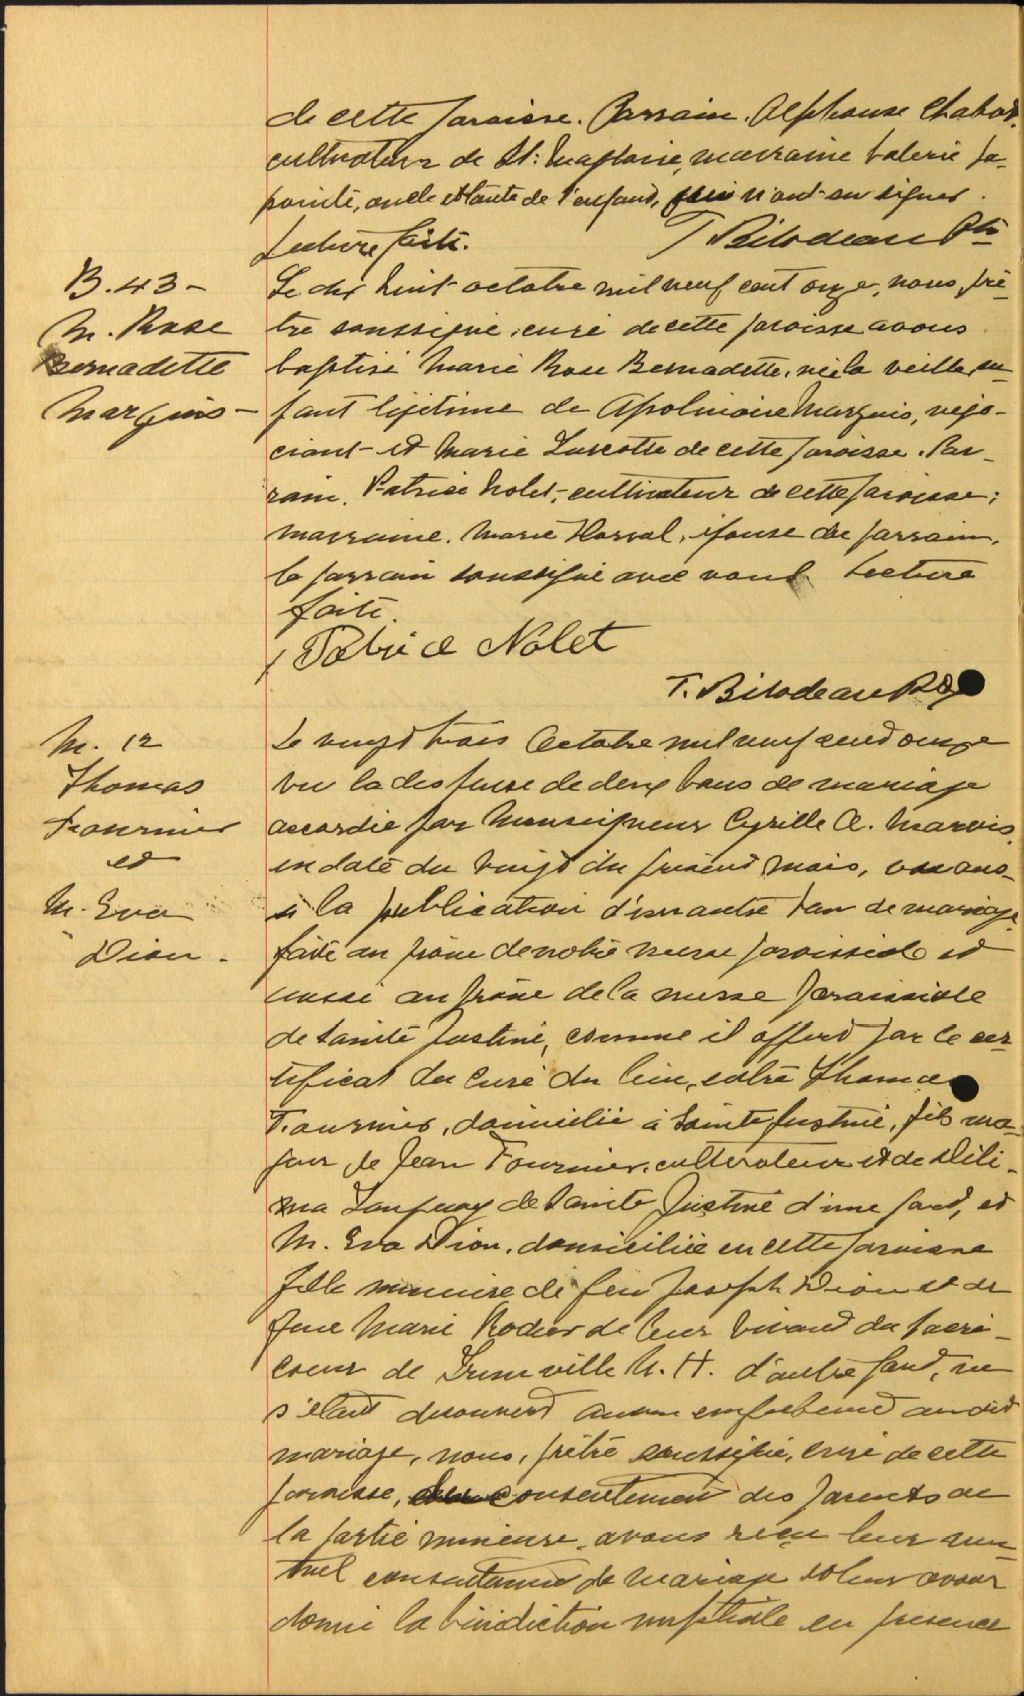 de cette paroisse. Parrain. Alphonse Chabot,
cultivateur de St: Magloire, marraine Valerie La-
pointe, oncle et tante de l'enfant, qui n'ont su signer.
Lecture faite. T Bilodeau Ptre
B. 43-
M. Rose
Bernadette
Marquis-
Le dix huit octobre mil neuf cent onze, nous, prê-
tre soussigné, curé de cette paroisse avons
baptisé Marie Rose Bernadette, née la veille, en-
fant légitime de Apolinaire Marquis, négo-
ciant et Marie Turcotte de cette paroisse. Par-
rain. Patrice Nolet, cultivateur de cette paroisse;
marraine. Marie , épouse du parrain,
le parrain soussigné avec nous. Lecture
faite.
Patrice Nolet
T. Bilodeau Ptre
M. 12
Thomas
Fournier
et
M. Eva
Dion.
Le vingt trois Octobre mil neuf cent onze
vu la dispense de deux bans de mariage
accordée par Monseigneur Cyrille A. Marois,
en date du vingt du présent mois, vu aus-
si la publication d'un autre ban de mariage
faite au prône de notre messe paroissiale et
aussi au prône de la messe paroissiale
de Sainte Justine, comme il appert par le cer-
tificat du curé du lieu, entre Thomas
Fournier, domicilié à Sainte Justine, fils ma-
jeur de Jean Fournier, cultivateur et de Déli-
ma Tanguay de Sainte Justine d'une part, et
M. Eva Dion, domiciliée en cette paroisse
fille mineure de feu Joseph Dion et de
feue Marie Rodier de leur vivant du Sacré-
coeur de ville N. H. d'autre part, ne
s'étant découvert aucun empêchement au dit
mariage, nous, prêtre soussigné, curé de cette
paroisse, consentement des parents de
la partie mineure, avons reçu leur mu-
tuel consentement de mariage et leur avons
donné la bénédiction nuptiale en présence